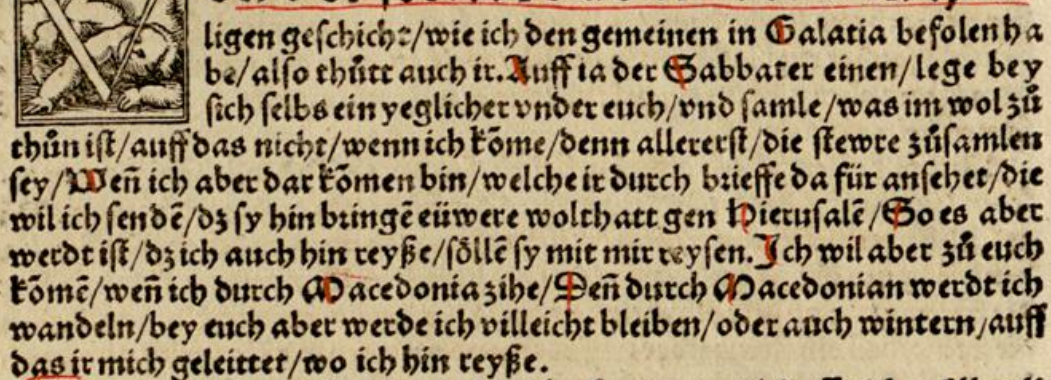 ligen geschicht/wie ich den gemeinen in Galatia befolen ha
be/also thůtt auch ir. Auff ia der Sabbater einen/lege bey
sich selbs ein yeglicher vnder euch/vnd samle/was im wol zů
thůn ist/auff das nicht/wenn ich kōme/denn allererst/die stewre zůsamlen
sey/Weñ ich aber dar kōmen bin/welche ir durch brieffe da für ansehet/die
wil ich sendē/dz sy hin bringē eüwere wolthatt gen Hierusalē/So es aber
werdt ist/dz ich auch hin reyße/söllē sy mit mir reysen. Ich wil aber zů euch
kōmē/weñ ich durch Macedonia zihe/Deñ durch Macedonian werdt ich
wandeln/bey euch aber werde ich villeicht bleiben/oder auch wintern/auff
das ir mich geleittet/wo ich hin reyße.